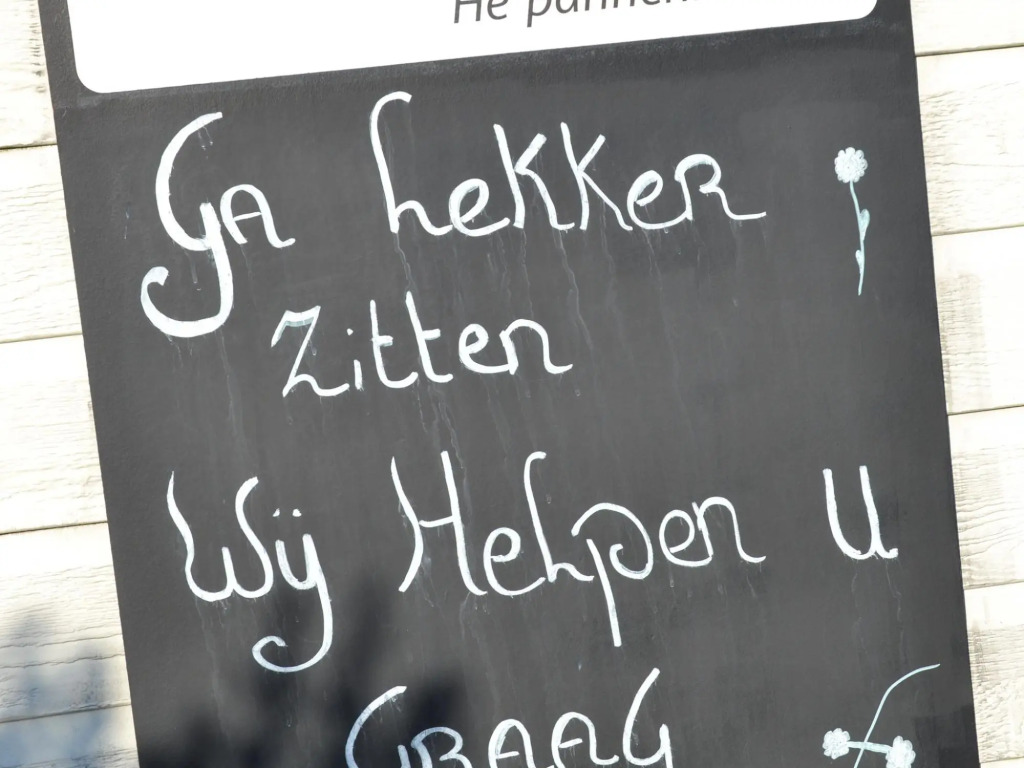 He
Ga Lekker
Zitten
Wij Helpen U
GRAAG